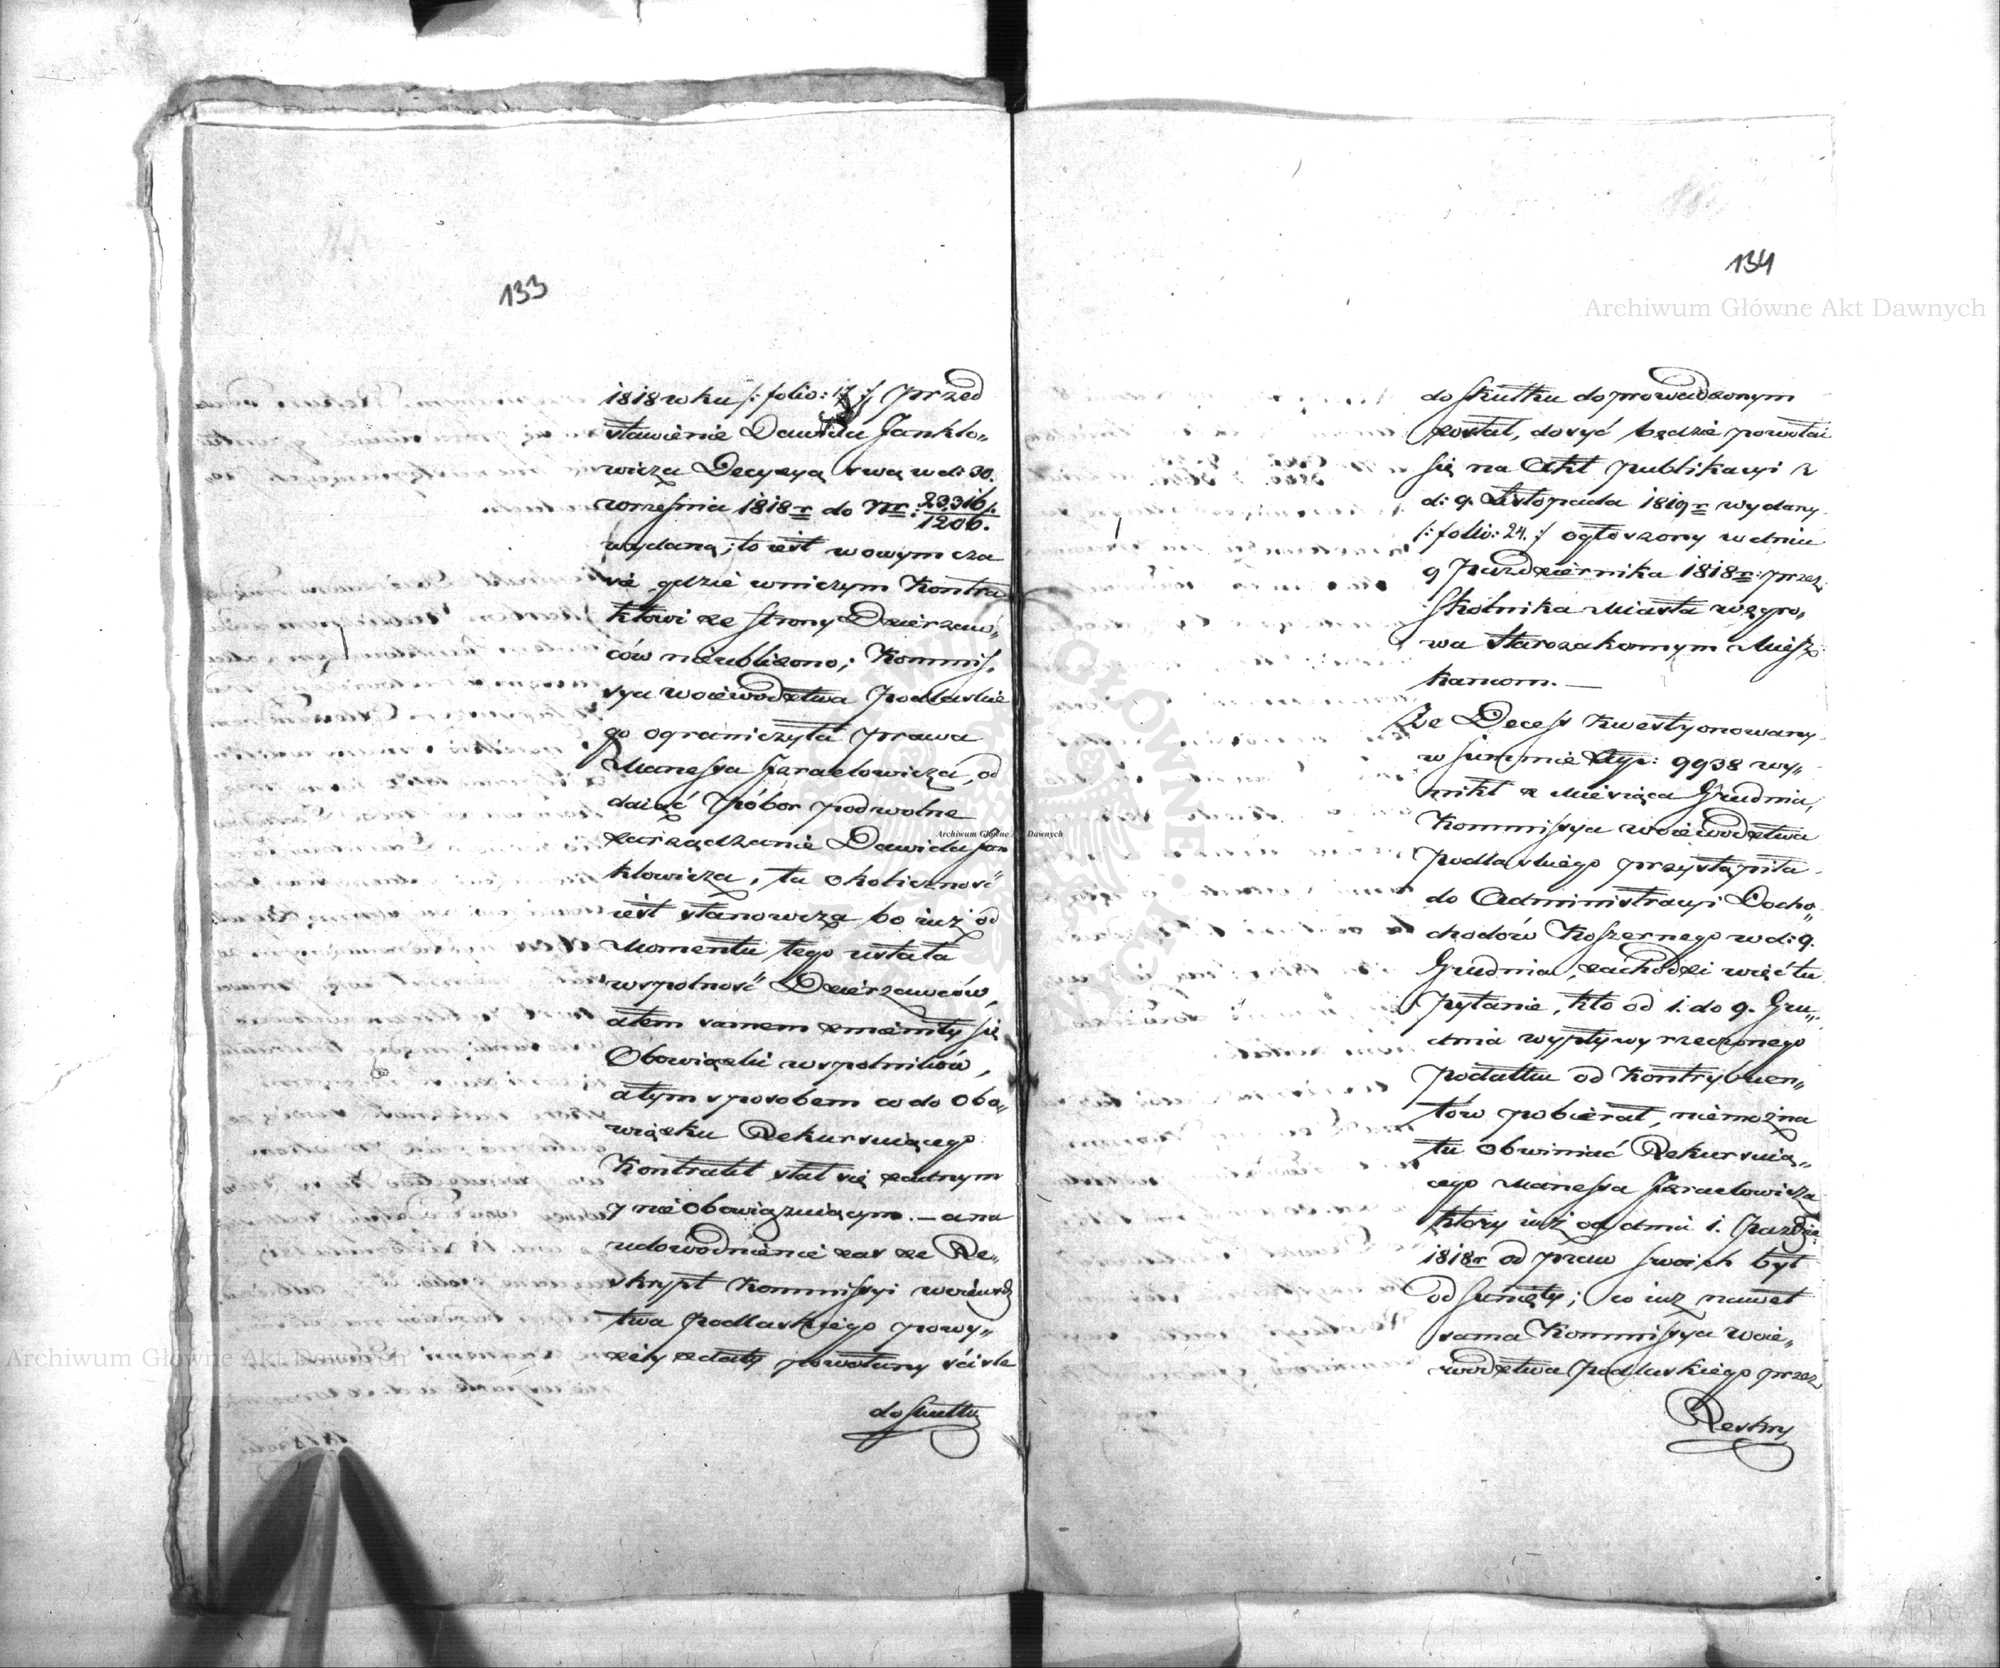 133
1818 roku /: folio: 17 :/ Przed
stawienie Dawida Jankło„
wicza Decyzyą swą w d: 30.
września 1818 r do Nr: 29316/1206.
wydaną; to iest w owym cza
sie, gdzie wniczym Kontra
ktowi ze strony Dzierzaw„
ców nieubliżono; Kommis„
sya Woiewodztwa Podlaskie
go ograniczyła prawa
Manessa Izraelowicza, od
daiąć Pobor pod wolne
zarządzanie Dawida Jan
klowicza, ta okoliczność
iest stanowczą bo iuż od
Momentu tego ustała
wspolność Dzierzawców,
a tem samem zmieniły się
Obowiązki wspolników,
a tym sposobem co do Obo„
wiązku Rekursuiącego
Kontrakt stał się żadnym
y nie Obowiązuiącym. — a na
udowodnienie zas ze Re„
skrypt Kommissyi Woiewodz
twa Podlaskiego powy„
żéy z daty powołany sciśle
do skutku
134
Archiwum Główne Akt Dawnych
do skutku doprowadzonym
został, dosyć będzie powołać
się na Akt publikacyi z
d: 9. Listopada 1819 r wydany
/: folio: 24. :/ ogłoszony w dniu
9 Pazdziernika 1818 r: przez
Szkolnika Miasta Węgro„
wa Starozakonnym Miesz
kancom. —
Ze Decess kwestyonowany
w summie Złp: 9938 wy„
nikł z Miesiąca Grudnia,
Kommissya Woiewodztwa
Podlaskiego przystąpiła
do Administracyi Docho„
chodów Koszernego w d: 9.
Grudnia, zachodzi więć tu
Pytanie, kto od 1. do 9. Gru„
dnia wypływy rzeczonego
Podatku od Kontrybuen„
tów pobierał, niemożna
tu Obwiniać Rekursuią„
cego Manessa Izraelowicza
ktory iuż od dnia 1. Pazdzie:
1818 r od praw swoich był
Odsunięty; co iuż nawet
sama Kommissya Woie„
wodztwa Podlaskiego przez
Reskry
Archiwum Główne Akt Dawnych
Archiwum Główne Akt Dawnych